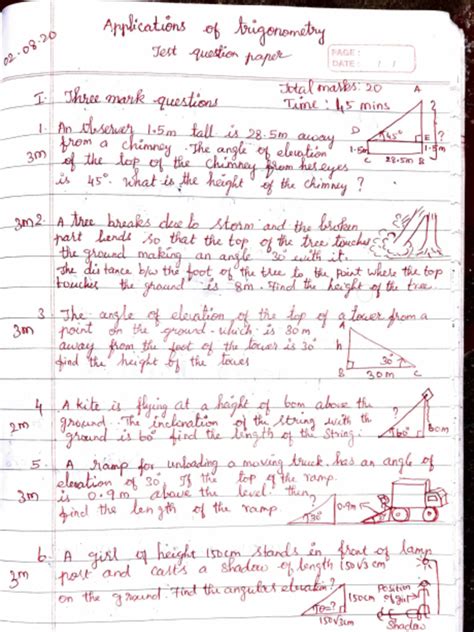 02.08.20
Applications of trigonometry
Test question paper
PAGE :
DATE : / /
Total marks: 20
I. Three mark questions Time : 45 mins
1. An Observer 1.5m tall is 28.5m away
from a chimney. The angle of elevation
3m of the top of the chimney from her eyes
is 45°. What is the height of the chimney ?
A
?
D 45° E
1.5m 1.5m
C 28.5m B
3m 2. A tree breaks due to storm and the broken
part bends so that the top of the tree touches
the ground making an angle 30° with it.
The distance b/w the foot of the tree to the point where the top
touches the ground is 8m. Find the height of the tree.
3. The angle of elevation of the top of a tower from a
3m point on the ground which is 30m
away from the foot of the tower is 30°
find the height of the tower
A
h
30°
B 30m C
4. A kite is flying at a height of 60m above the
2m ground. The inclination of the string with th
ground is 60° find the length of the string.
?
60° 60m
5. A ramp for unloading a moving truck has an angle of
elevation of 30° If the top of the ramp
3m is 0.9m above the level then
find the length of the ramp.
? 0.9m
30°
6. A girl of height 150cm stands in front of lamp
3m post and casts a shadow of length 150√3 cm
on the ground. Find the angular elevation?
θ=? 150cm
150√3cm
Position
of girl
Shadow